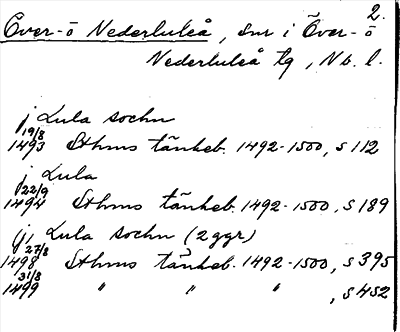 2.
Över- o Nederluleå, snr i Över- o
Nederluleå tg, Nb. l.
j Lula sochn
19/8 1493 Sthms tänkeb. 1492-1500, s 112
j Lula
22/9 1494 Sthms tänkeb. 1492-1500, s 189
(j) Lula sochn (2 ggr)
27/8 1498 Sthms tänkeb. 1492-1500, s 395
31/8 1499 " " " , s 452